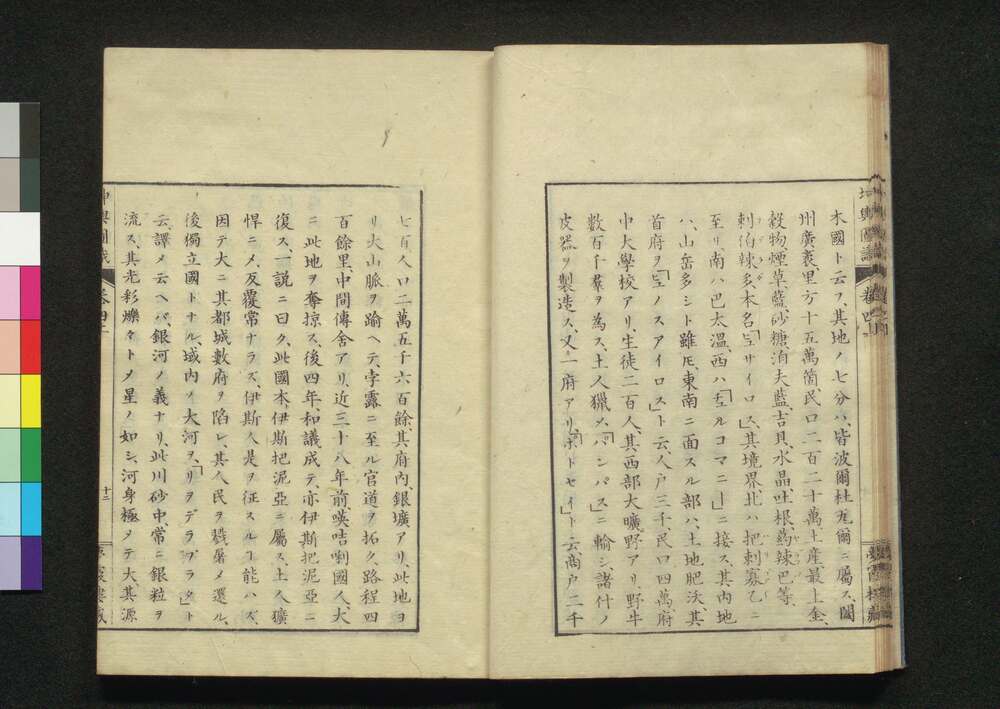 木國ト云フ、其地ノ七分ハ、皆波爾杜瓦爾ニ屬ス、國
州廣袤、里方十五萬箇、民口二百二十萬、土産最上金、
穀物、煙草、藍、砂糖、洎夫藍、吉貝、水晶、吐根、葯辣巴等、
刺伯辣多、本名「ヱサイロ」ス、其境界北ハ把剌襄乙ニ
至リ、南ハ巴太溫、西ハ「ヱルコマニー」ニ接ス、其内地
ハ、山岳多シト雖𪜈、東南ニ面スル部ハ、土地肥沃、其
首府ヲ「ヱノスアイロス」ト云、人戸三千、民口四萬、府
中大學校アリ、生徒二百人、其西部大曠野アリ、野牛
數百千羣ヲ為ス、土人獵〆、「パンパス」ニ輸シ、諸什ノ
皮器ヲ製造ス、又一府アリ、「ポトセイ」ト云、商戸二千
七百、人口二萬五千六百餘、其府内、銀壙アリ、此地ヨ
リ大山脈ヲ踰ヘテ、孛露ニ至ル官道ヲ拓ク、路程四
百餘里、中間傳舍アリ、近三十八年前、𠸄咭唎國人、大
ニ此地ヲ奪掠ス、後四年、和議成テ、亦伊斯把泥亞ニ
復ス、一説ニ曰ク、此國本伊斯把泥亞ニ屬ス、土人獷
悍ニ〆、反覆常ナラズ、伊斯人是ヲ征スルヿ能ハズ、
因テ大ニ其都城數府ヲ陷レ、其人民ヲ戮屠〆還ル、
後獨立國トナル、域内イ大河ヲ、「リヲデラプラタ」ト
云、譯〆云ヘバ、銀河ノ義ナリ、此川砂中、常ニ銀粒ヲ
流ス、其光彩爍々ト〆星ノ如シ、河身極〆テ大、其源